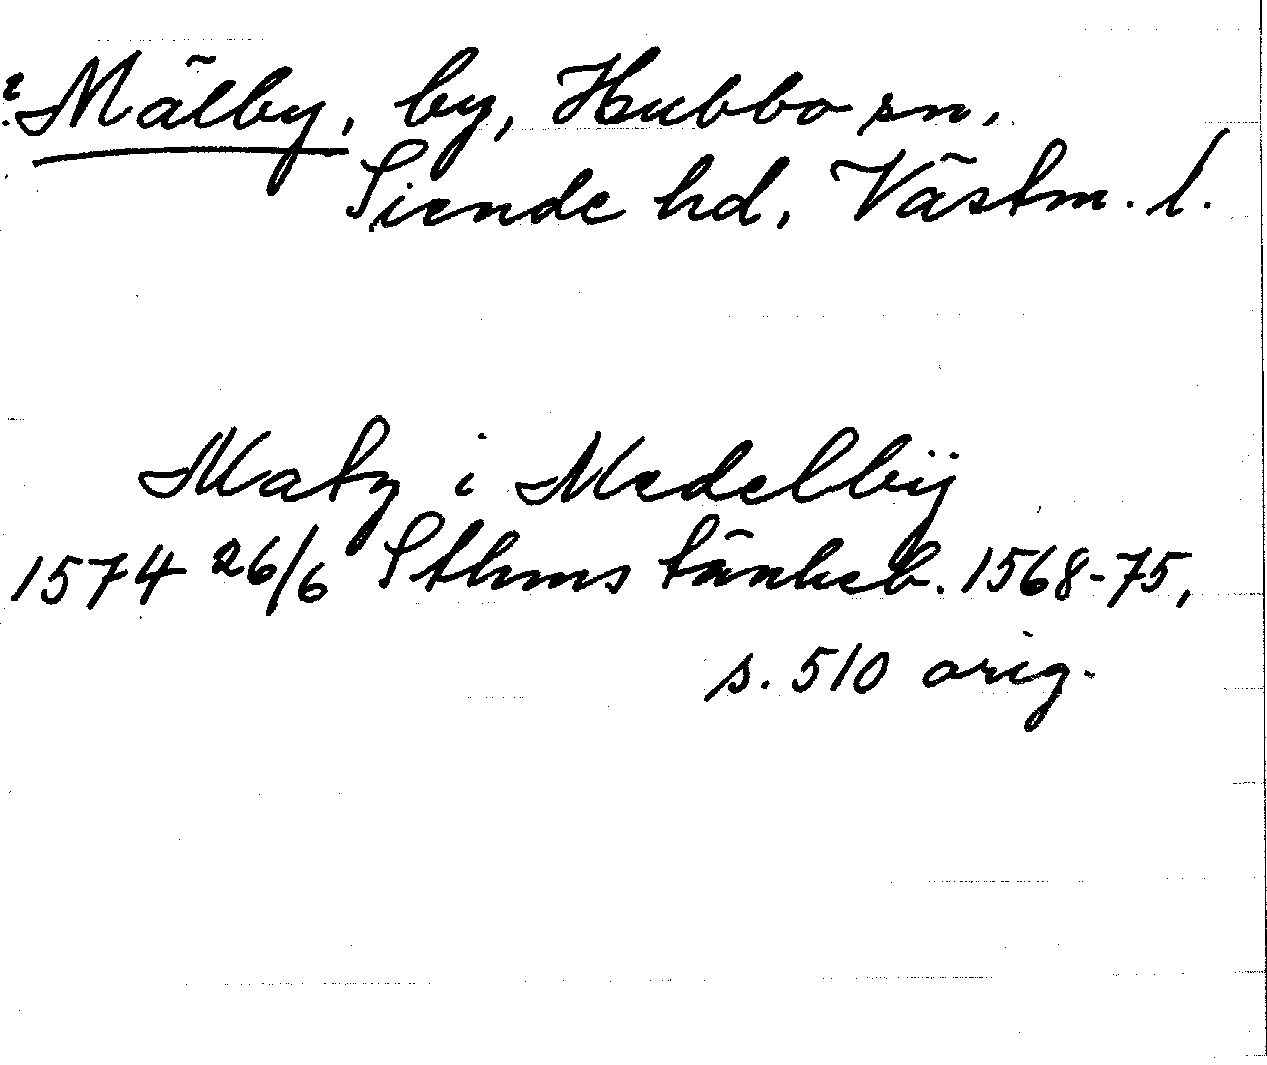 ? Mälby, by, Hubbo sn,
Siende hd, Västm. l.
Matz i Medelbÿ
1574 26/6 Sthms tänkeb. 1568-75,
s. 510 orig.